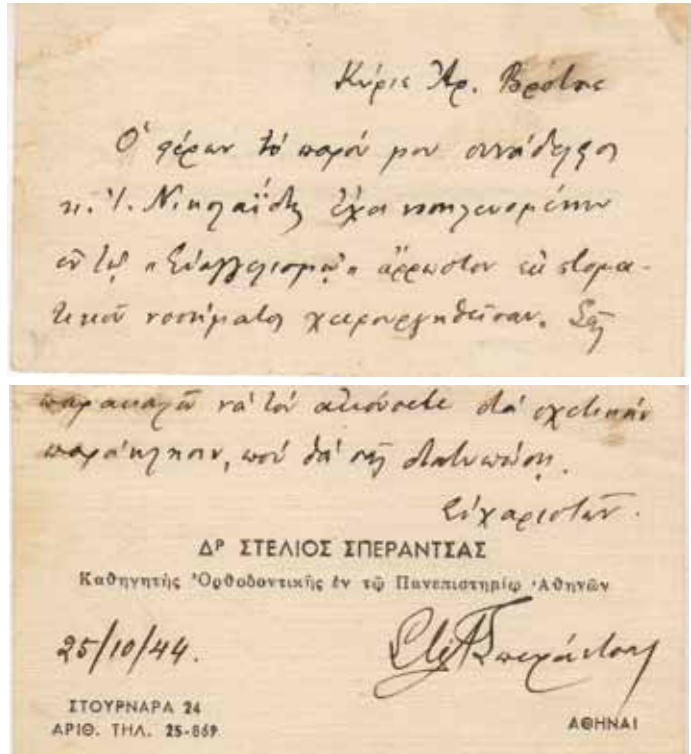 Κύριε Ἀρ. Βρότσε
Ὁ φέρων τό παρόν μου συνάδελφος
κ. Ἰ. Νικολαΐδης ἔχει νοσηλευομένην
ἐν τῷ "Εὐαγγελισμῷ" ἄρρωστον ἐκ στομα-
τικοῦ νοσήματος χειρουργηθεῖσαν. Σᾶς
παρακαλῶ νά τόν ἀκούσετε διά σχετικήν
παράκλησιν, πού θά σᾶς διατυπώσῃ.
Εὐχαριστῶν.
ΔΡ ΣΤΕΛΙΟΣ ΣΠΕΡΑΝΤΣΑΣ
Καθηγητὴς Ὀρθοδοντικῆς ἐν τῷ Πανεπιστημίῳ Ἀθηνῶν
25/10/44.
Στέλ. Σπεράντσας
ΣΤΟΥΡΝΑΡΑ 24
ΑΡΙΘ. ΤΗΛ. 25-869
ΑΘΗΝΑΙ